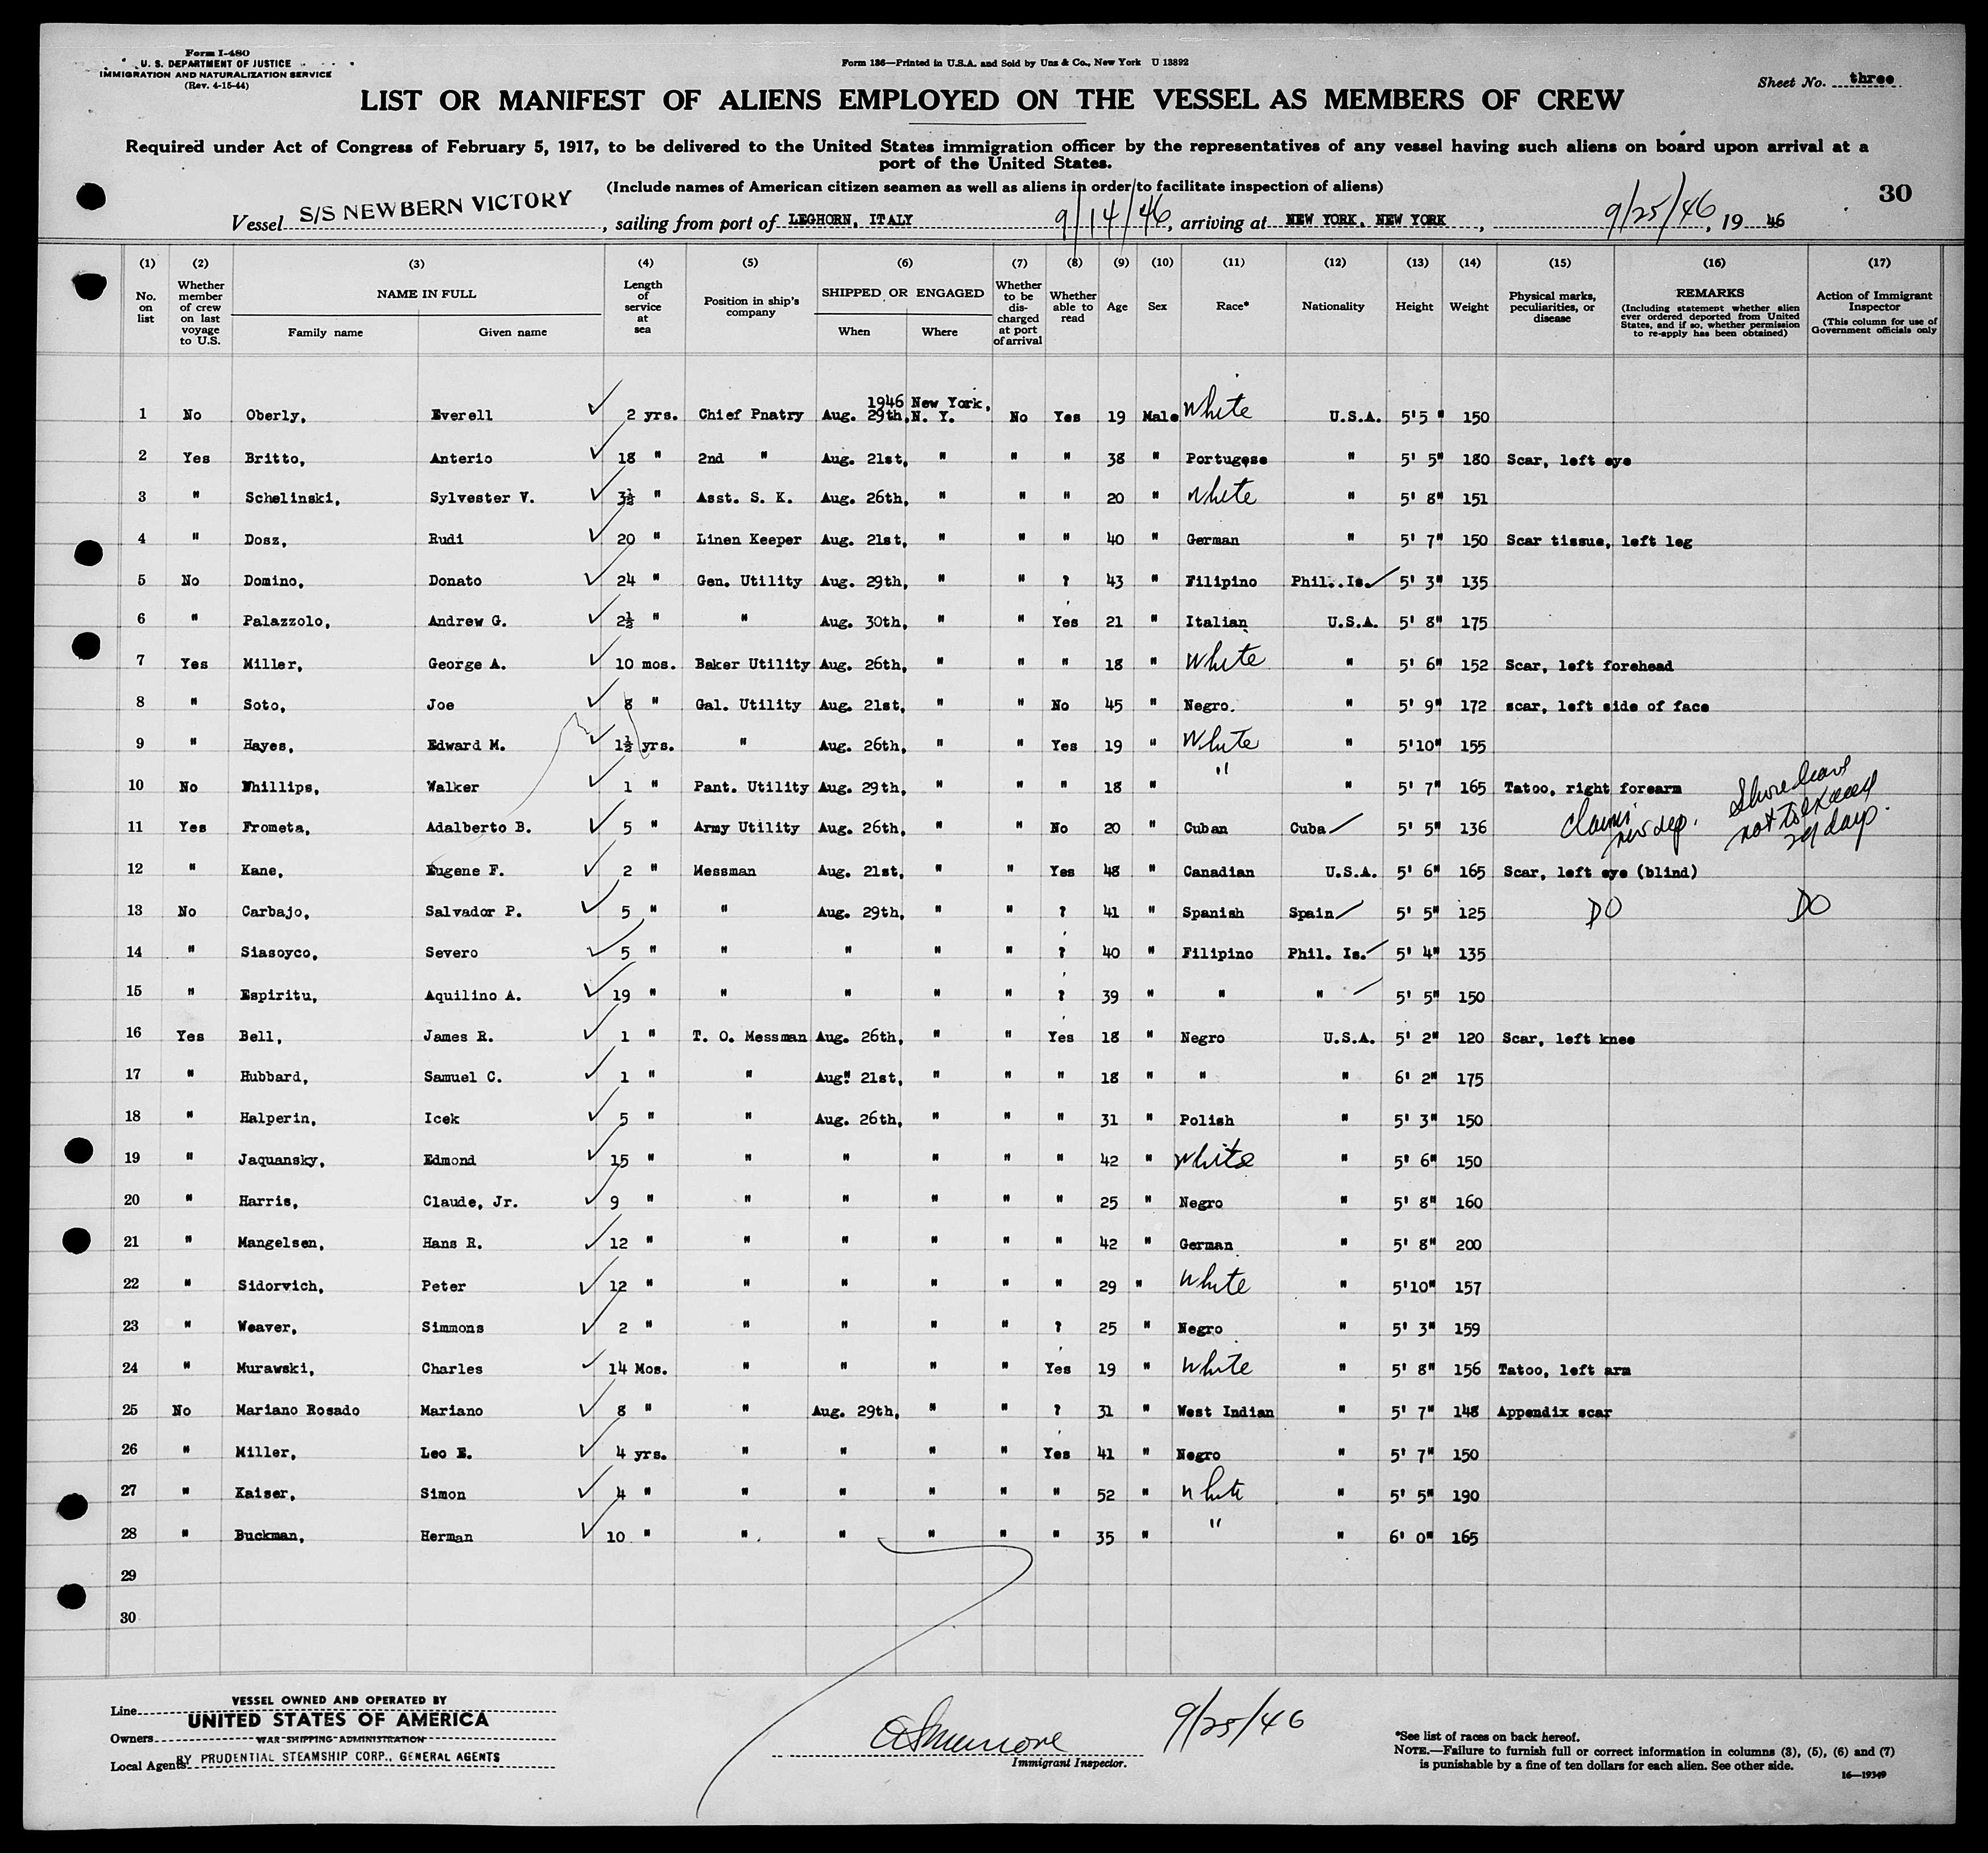 Form I-480
U. S. DEPARTMENT OF JUSTICE
IMMIGRATION AND NATURALIZATION SERVICE
(Rev. 4-15-44)
Form 136—Printed in U.S.A. and Sold by Unz & Co., New York U 13892
Sheet No. three
LIST OR MANIFEST OF ALIENS EMPLOYED ON THE VESSEL AS MEMBERS OF CREW
Required under Act of Congress of February 5, 1917, to be delivered to the United States immigration officer by the representatives of any vessel having such aliens on board upon arrival at a
port of the United States.
(Include names of American citizen seamen as well as aliens in order to facilitate inspection of aliens)
30
Vessel S/S NEWBERN VICTORY, sailing from port of LEGHORN, ITALY 9/14/46, arriving at NEW YORK, NEW YORK, 9/25/46, 19 46
(1) (2) (3) (4) (5) (6) (7) (8) (9) (10) (11) (12) (13) (14) (15) (16) (17)
No. on list
Whether member of crew on last voyage to U.S.
NAME IN FULL
Family name Given name
Length of service at sea
Position in ship's company
SHIPPED OR ENGAGED
When Where
Whether to be discharged at port of arrival
Whether able to read
Age
Sex
Race*
Nationality
Height
Weight
Physical marks, peculiarities, or disease
REMARKS
(Including statement whether alien ever ordered deported from United States, and if so, whether permission to re-apply has been obtained)
Action of Immigrant Inspector
(This column for use of Government officials only
1946 New York,
1 No Oberly, Everell 2 yrs. Chief Pnatry Aug. 29th, N. Y. No Yes 19 Male White U.S.A. 5'5 " 150
2 Yes Britto, Anterio 18 " 2nd " Aug. 21st, " " " 38 " Portugese " 5' 5" 180 Scar, left eye
3 " Schelinski, Sylvester V. 3½ " Asst. S. K. Aug. 26th, " " " 20 " White " 5' 8" 151
4 " Dosz, Rudi 20 " Linen Keeper Aug. 21st, " " " 40 " German " 5' 7" 150 Scar tissue, left leg
5 No Domino, Donato 24 " Gen. Utility Aug. 29th, " " ? 43 " Filipino Phil. Is. 5' 3" 135
6 " Palazzolo, Andrew G. 2½ " " Aug. 30th, " " Yes 21 " Italian U.S.A. 5' 8" 175
7 Yes Miller, George A. 10 mos. Baker Utility Aug. 26th, " " " 18 " White " 5' 6" 152 Scar, left forehead
8 " Soto, Joe 8 " Gal. Utility Aug. 21st, " " No 45 " Negro. " 5' 9" 172 scar, left side of face
9 " Hayes, Edward M. 1½ yrs. " Aug. 26th, " " Yes 19 " White " 5'10" 155
10 No Whillips, Walker 1 " Pant. Utility Aug. 29th, " " " 18 " " " 5' 7" 165 Tatoo, right forearm
11 Yes Frometa, Adalberto B. 5 " Army Utility Aug. 26th, " " No 20 " Cuban Cuba 5' 5" 136 Claims nev dep. Shore leave not to exceed 29 days.
12 " Kane, Eugene F. 2 " Messman Aug. 21st, " " Yes 48 " Canadian U.S.A. 5' 6" 165 Scar, left eye (blind)
13 No Carbajo, Salvador P. 5 " " Aug. 29th, " " ? 41 " Spanish Spain 5' 5" 125 DO DO
14 " Siasoyco, Severo 5 " " " " " ? 40 " Filipino Phil. Is. 5' 4" 135
15 " Espiritu, Aquilino A. 19 " " " " " ? 39 " " " 5' 5" 150
16 Yes Bell, James R. 1 " T. O. Messman Aug. 26th, " " Yes 18 " Negro U.S.A. 5' 2" 120 Scar, left knee
17 " Hubbard, Samuel C. 1 " " Aug. 21st, " " " 18 " " " 6' 2" 175
18 " Halperin, Icek 5 " " Aug. 26th, " " " 31 " Polish " 5' 3" 150
19 " Jaquansky, Edmond 15 " " " " " " 42 " White " 5' 6" 150
20 " Harris, Claude, Jr. 9 " " " " " " 25 " Negro " 5' 8" 160
21 " Mangelsen, Hans R. 12 " " " " " " 42 " German " 5' 8" 200
22 " Sidorvich, Peter 12 " " " " " " 29 " White " 5'10" 157
23 " Weaver, Simmons 2 " " " " " ? 25 " Negro " 5' 3" 159
24 " Murawski, Charles 14 Mos. " " " " Yes 19 " White " 5' 8" 156 Tatoo, left arm
25 No Mariano Rosado Mariano 8 " " Aug. 29th, " " ? 31 " West Indian " 5' 7" 148 Appendix scar
26 " Miller, Leo E. 4 yrs. " " " " Yes 41 " Negro " 5' 7" 150
27 " Kaiser, Simon 4 " " " " " " 52 " White " 5' 5" 190
28 " Buckman, Herman 10 " " " " " " 35 " " " 6' 0" 165
29
30
Line VESSEL OWNED AND OPERATED BY
Owners UNITED STATES OF AMERICA
WAR SHIPPING ADMINISTRATION
Local Agents BY PRUDENTIAL STEAMSHIP CORP., GENERAL AGENTS
9/25/46
Immigrant Inspector.
*See list of races on back hereof.
NOTE.—Failure to furnish full or correct information in columns (3), (5), (6) and (7)
is punishable by a fine of ten dollars for each alien. See other side.
16—19349